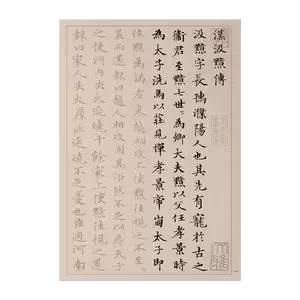 漢汲黯傳
汲黯字長孺濮陽人也其先有寵於古之
衞君至黯七世〻為卿大夫黯以父任孝景時
為太子洗馬以莊見憚孝景帝崩太子即
位黯為謁者東越相攻上使黯往視之不
至吳而還報曰越人相攻固其俗然不足以辱天子
之使河内失火延燒千餘家上使黯往視之還
報曰家人失火屋比延燒不足憂也臣過河南